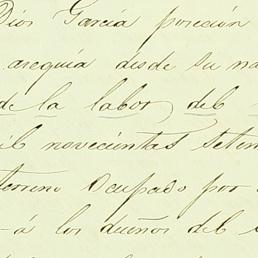 Dios García porción
arequía desde su na
de la labor del
il novecientas seten
terreno Ocupado por
á los dueños del